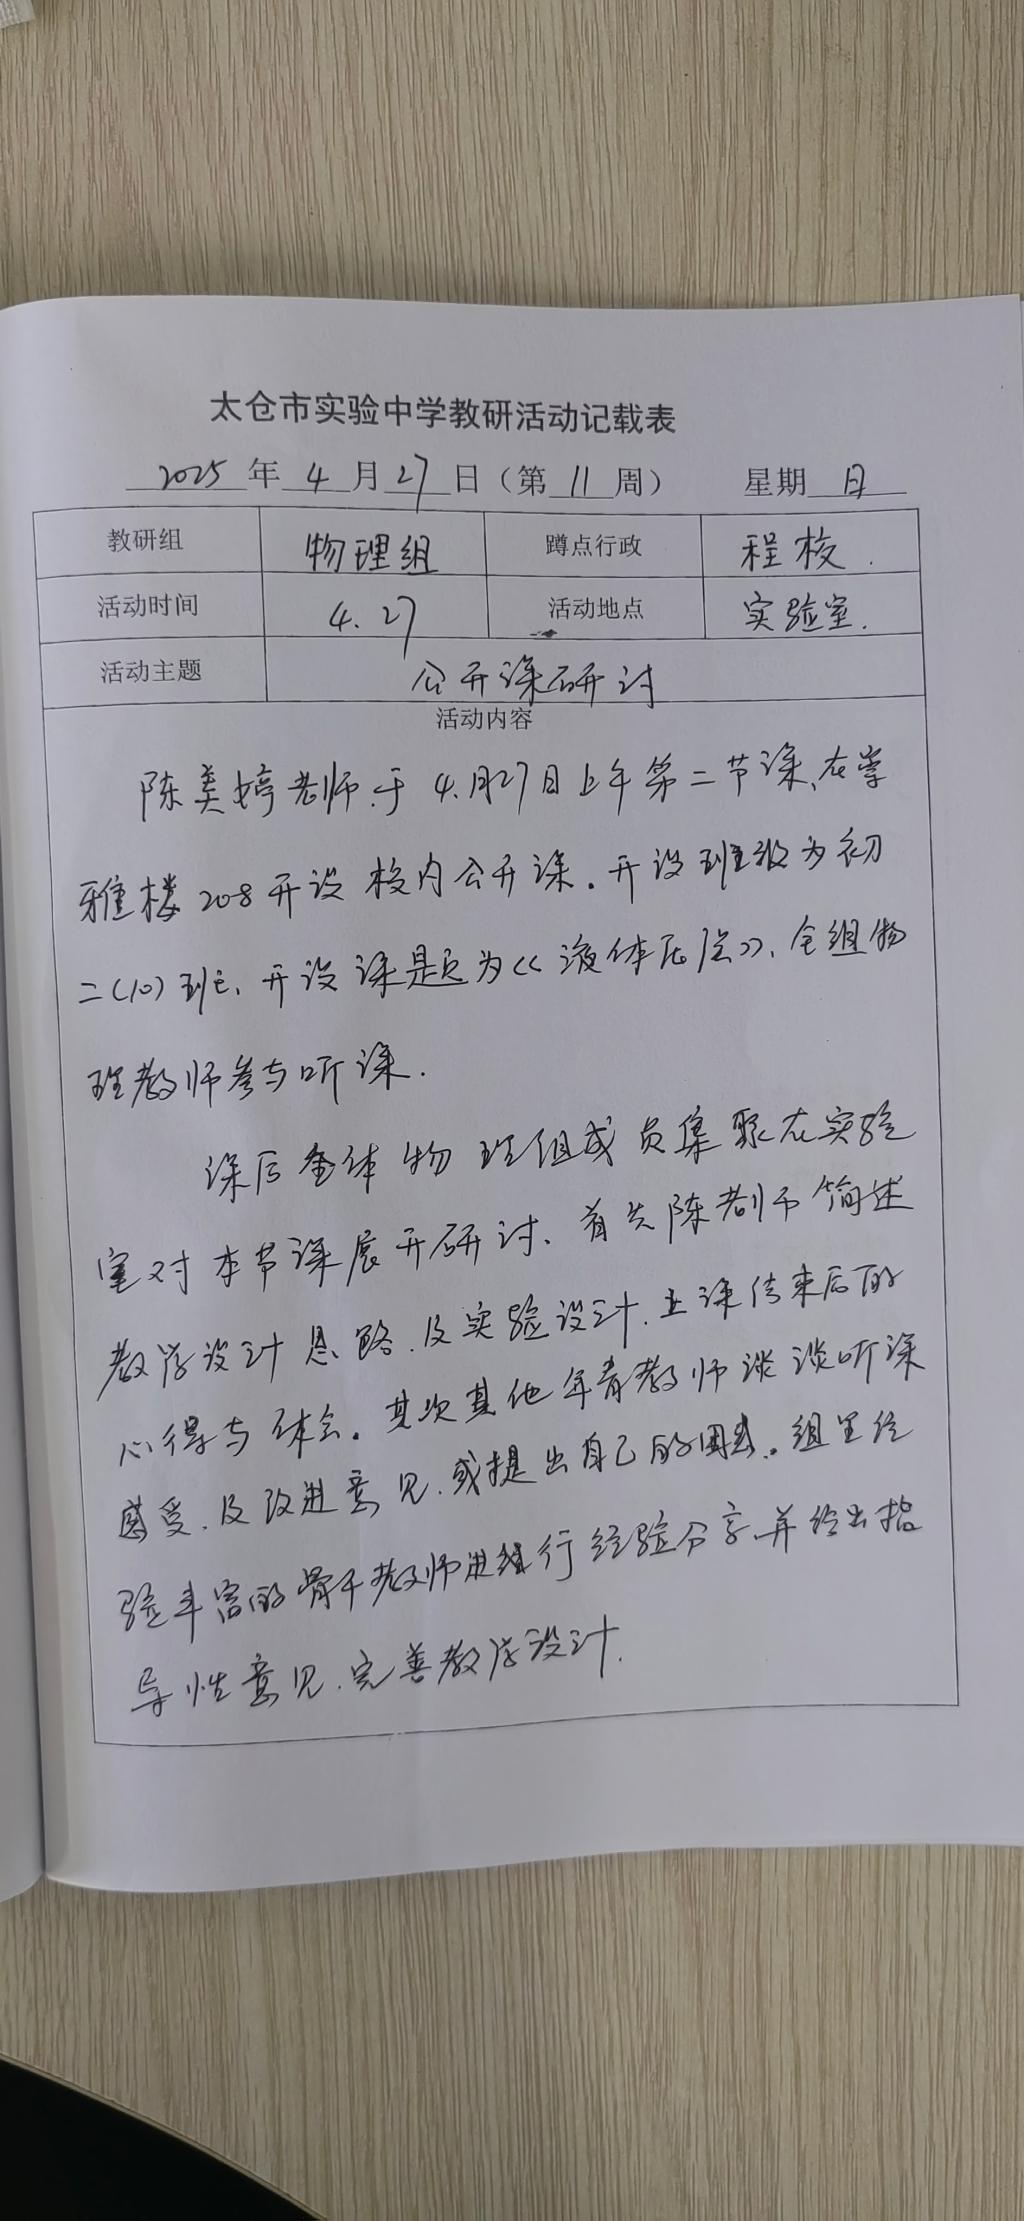 太仓市实验中学教研活动记载表
2025 年 4 月 27 日（第 11 周） 星期 日
教研组 物理组 蹲点行政 程校.
活动时间 4.27 活动地点 实验室.
活动主题 公开课研讨
活动内容
陈美婷老师于4月27日上午第二节课,在掌
雅楼208开设校内公开课.开设班级为初
二(10)班,开设课题为《液体压强》,全组物
理教师参与听课.
课后全体物理组成员集聚在实验
室对本节课展开研讨、首先陈老师简述
教学设计思路.及实验设计.上课结束后的
心得与体会.其次其他年青教师谈谈听课
感受.及改进意见.或提出自己的困惑.组里经
验丰富的骨干教师进行经验分享.并给出指
导性意见.完善教学设计.